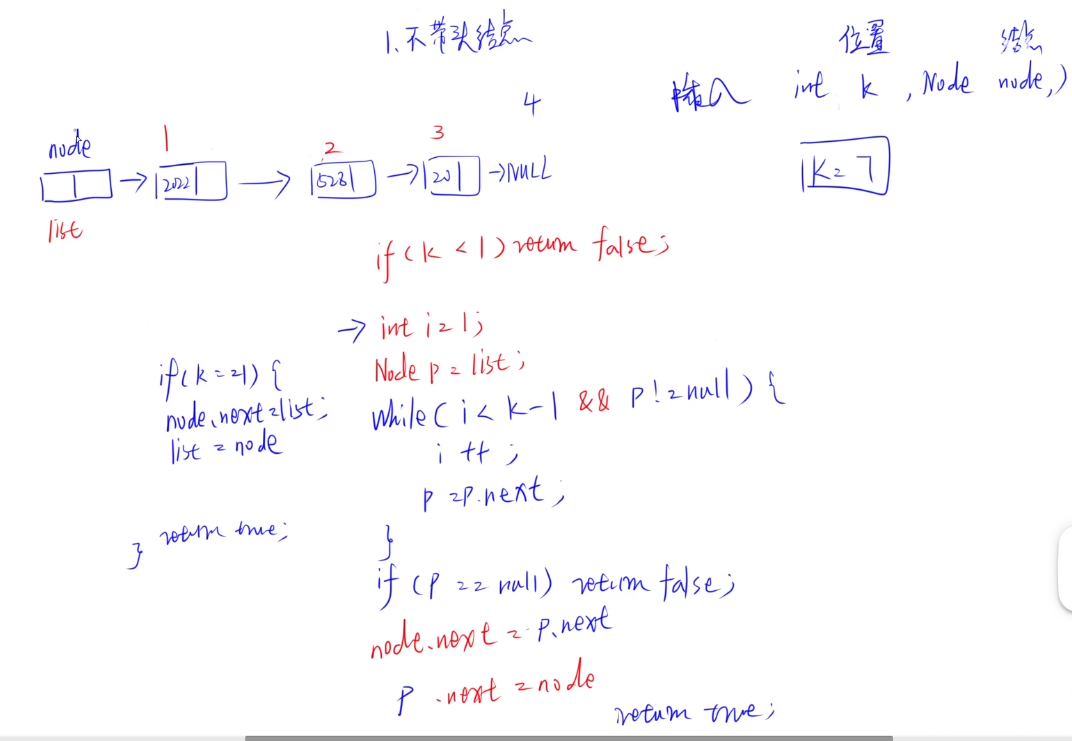 1.不带头结点
位置 结点
插入 int k , Node node,)
4
node 1 2 3
2022 → 523 → 20 → NULL
list
K = 7
if ( k < 1 ) return false;
→ int i = 1;
Node p = list;
while ( i < k-1 && p != null ) {
i ++ ;
p = p.next ;
}
if (p == null) return false;
node.next = p.next
p .next = node
return true;
if(k==1) {
node.next=list;
list = node
return true;
}